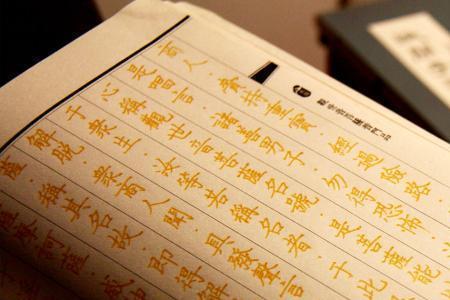 觀世音菩薩普門品
商人．齎持重寶．經過險路．
是唱言．諸善男子．勿得恐怖．
心稱觀世音菩薩名號．是菩薩能
于眾生．汝等若稱名者．于比
解脫．眾商人聞．具發聲言
薩．稱其名故．即得解
摩訶薩．威